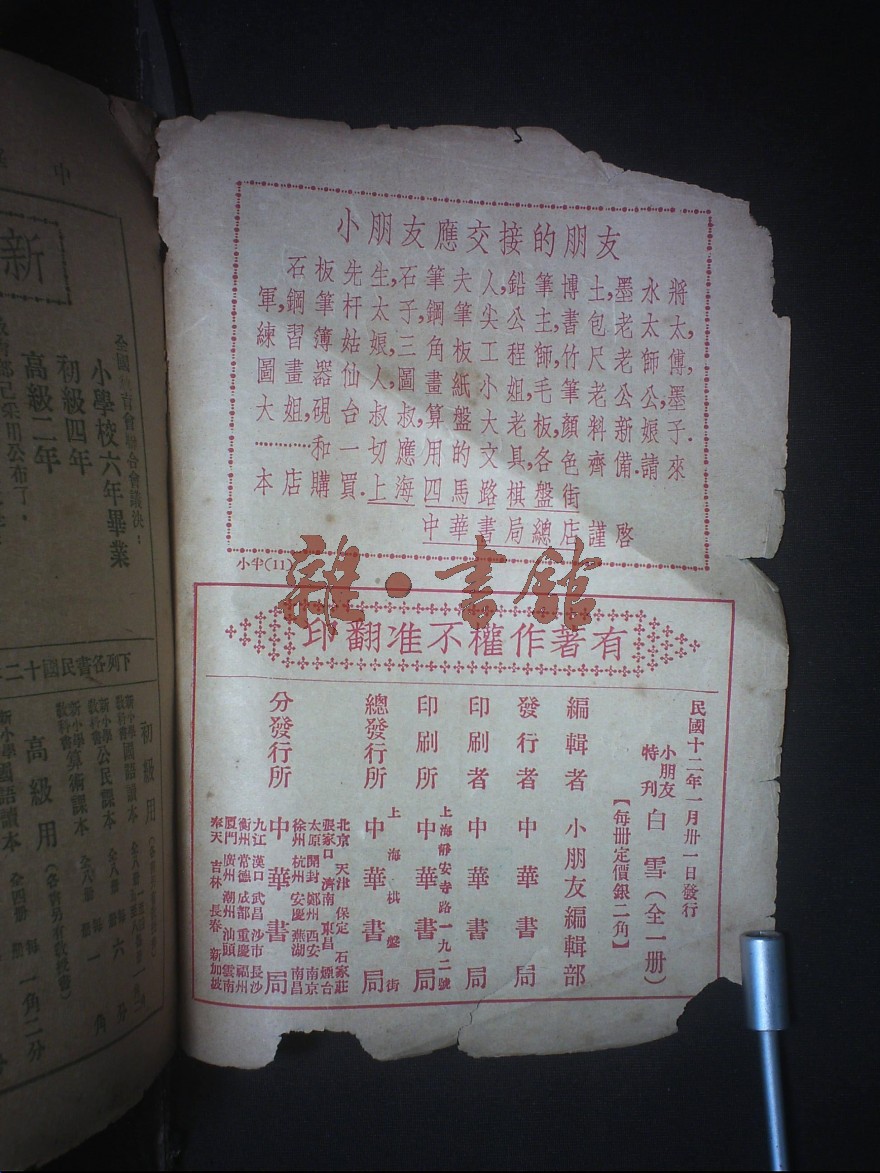 小朋友應交接的朋友
石板先生,石筆夫人,鉛筆博士,墨水將
軍,鋼筆杆太子,鋼筆尖公主,書包老太太,
練習簿姑娘,三角板工程師,竹尺老師傅,
圖畫器仙人,圖畫紙小姐,毛筆老公公,墨
大姐,硯台叔叔,算盤大老板,顏料新娘子.
………和一切應用的文具,各色齊備.請來
本店購買.上海四馬路棋盤街
中華書局總店謹啓
小半(11)
雜·書館
有著作權不准翻印
民國十二年一月卅一日發行
小朋友特刊 白雪(全一册)
【每册定價銀二角】
編輯者 小朋友編輯部
發行者 中華書局
印刷者 中華書局
印刷所 上海靜安寺路一九二號 中華書局
總發行所 上海棋盤街 中華書局
分發行所 中華書局
北京 天津 保定 石家莊
張家口 濟南 東昌 煙台
太原 開封 鄭州 西安 南京
徐州 杭州 安慶 蕪湖 南昌
九江 漢口 武昌 沙市 長沙
衡州 常德 成都 重慶 福州
厦門 廣州 潮州 汕頭 雲南
奉天 吉林 長春 新加坡
中
新
全國教育會聯合會議決:
小學校六年畢業
初級四年
高級二年
教育部已采用公布了.
下列各書民國十二年
初級用
新小學教科書 國語讀本 全八册
新小學教科書 公民課本 全八册
新小學教科書 算術課本 全八册
高級用
(各書另有教授書)
新小學 國語讀本 全四册
每册一角二分